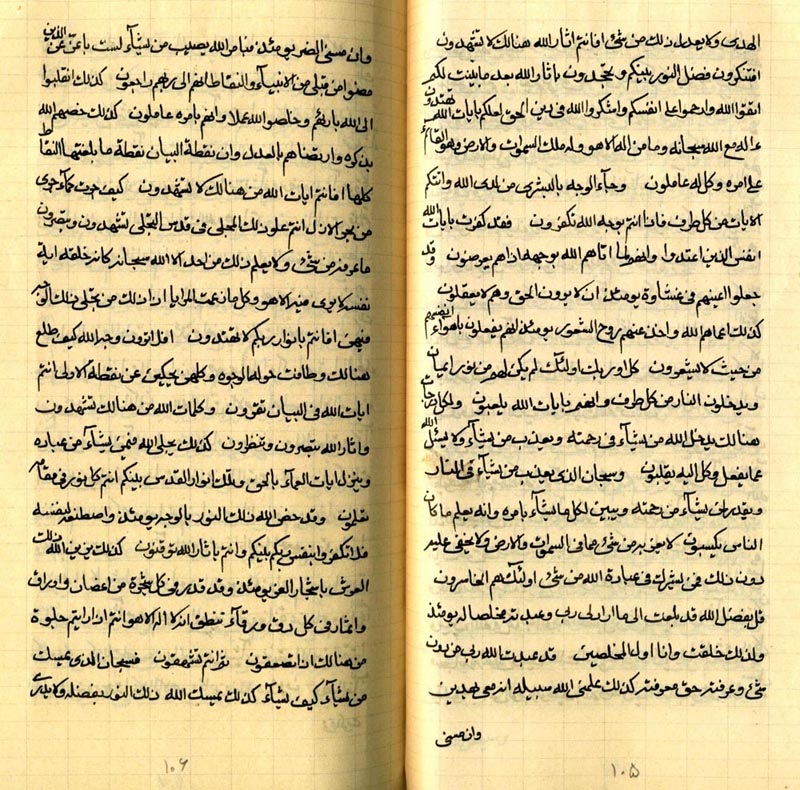 الهدى ولا يعدل ذلك من شئ افانتم اثار الله هنالك لا تشهدون
افتنكرون فضل النور بينكم وتجحدون باثار الله بعد ما بينت لكم
اتقوا الله وارحموا على انفسكم واشكروا الله فى دين الحق لعلكم بايات الله تهتدون
ءاله مع الله سبحانه وما من اله الا هو وله ملك السموات والارض وهو القائم
على امره وكل له عاملون وجاء الوجه بالبشرى من لدى الله واتتكم
الايات من كل طرف فاذا انتم بوجه الله تكفرون فقد كفرت بايات الله
انفس الذين اعتدوا وانهم لما اتاهم الله بوجهه اذا هم يعرضون وقد
جعلوا اعينهم فى غشاوة يومئذ ان لا يرون الحق وهم لا يعقلون
كذلك اعماهم الله واخذ عنهم روح الشعور يومئذ لهم يفعلون باهواء انفسهم
من حيث لا يشعرون كل اورياب اولئك لم يكن لهم من نور ايمان
ويدخلون النار من كل طرف وانهم بايات الله يلعبون ولكل درجات
هنالك يدخل الله من يشآء فى رحمته ويعذب من يشآء ولا يسئل الله
عما يفعل وكل اليه يقلبون وسبحان الذى يعذب من يشآء فى النار
ويقدر لمن يشآء من رحمته ويبين لكل ما يشآء بامره وانه يعلم ما كان
الناس يكسبون لا يعزب من شئ عما فى السموات والارض ولا يخفى عليه
دون ذلك فمن يشرك فى عبادة الله من شئ اولئك هم الخاسرون
قل بفضل الله قد بلغت الى ما ارادنى ربى وعبدته مخلصا له يومئذ
ولذلك خلقت وانا اول المخلصين قد عبدت الله ربى من دون
شئ وعرفته حق معرفته كذلك علمنى الله سبيله انه يهدين
وان مسنى
١٠٥
وان مسنى الضر يومئذ فبامر الله يصيب من يشآء لست باعن عن الذين
مضوا من قبلى من الانبيآء والنقباط انهم الى ربهم راجعون كذلك انقلبوا
الى الله بارئهم وخلصوا لله عملا وانهم بامره عاملون كذلك خصهم الله
بذكره وارتضاهم بالعدل وان نقطة البيان نقطة ما بلغتها النقاط
كلها افانتم ايات الله من هنالك لا تشهدون كيف جرت
من بحر الازل انتم علون لك المجلى فى قدس التجلى تشهدون وتبصرون
ما عرفه من شئ ولا يعلم ذلك من احد الا الله سبحانه كانه خلقته اية
نفسه لا يرى فيها الا هو وكل ما نعت المرايا اذ ان لك من تجلى ذلك النور
فيهن افانتم بانوار ربكم لا تهتدون افلا ترون وجه الله كيف طلع
هنالك وطافت حوله الوجوه وكلهن يحكين عن نقطة الاولى انتم
ايات الله فى البيان تقرؤن وكلمات الله من هنالك تشهدون
واثار الله تبصرون وتنظرون كذلك يجلى الله فيمن يشآء من عباده
وينزل ايات العمآء بالحق وتلك انوار القدس بينكم انتم كل نور فى مقام
تعلمون وقد خص الله ذلك النور بالوجه يومئذ واصطنعه لنفسه
فلا تكفروا بنفس ربكم بينكم وانتم باثار الله توقنون كذلك يزين الله ذلك
العرش باشجار العز يومئذ وقد قدر فى كل شجرة من اغصان واوراق
واثمار فى كل دف ورقآء تنطق انه لا اله الا هو وانتم اذا رايتم جلوة
من هنالك اذا تصعقون ثم انتم تشهقون فسبحان الذى يمسك
من يشآء كيف يشآء كذلك يمسك الله ذلك النور بفضله ولا يدرى
١٠٦